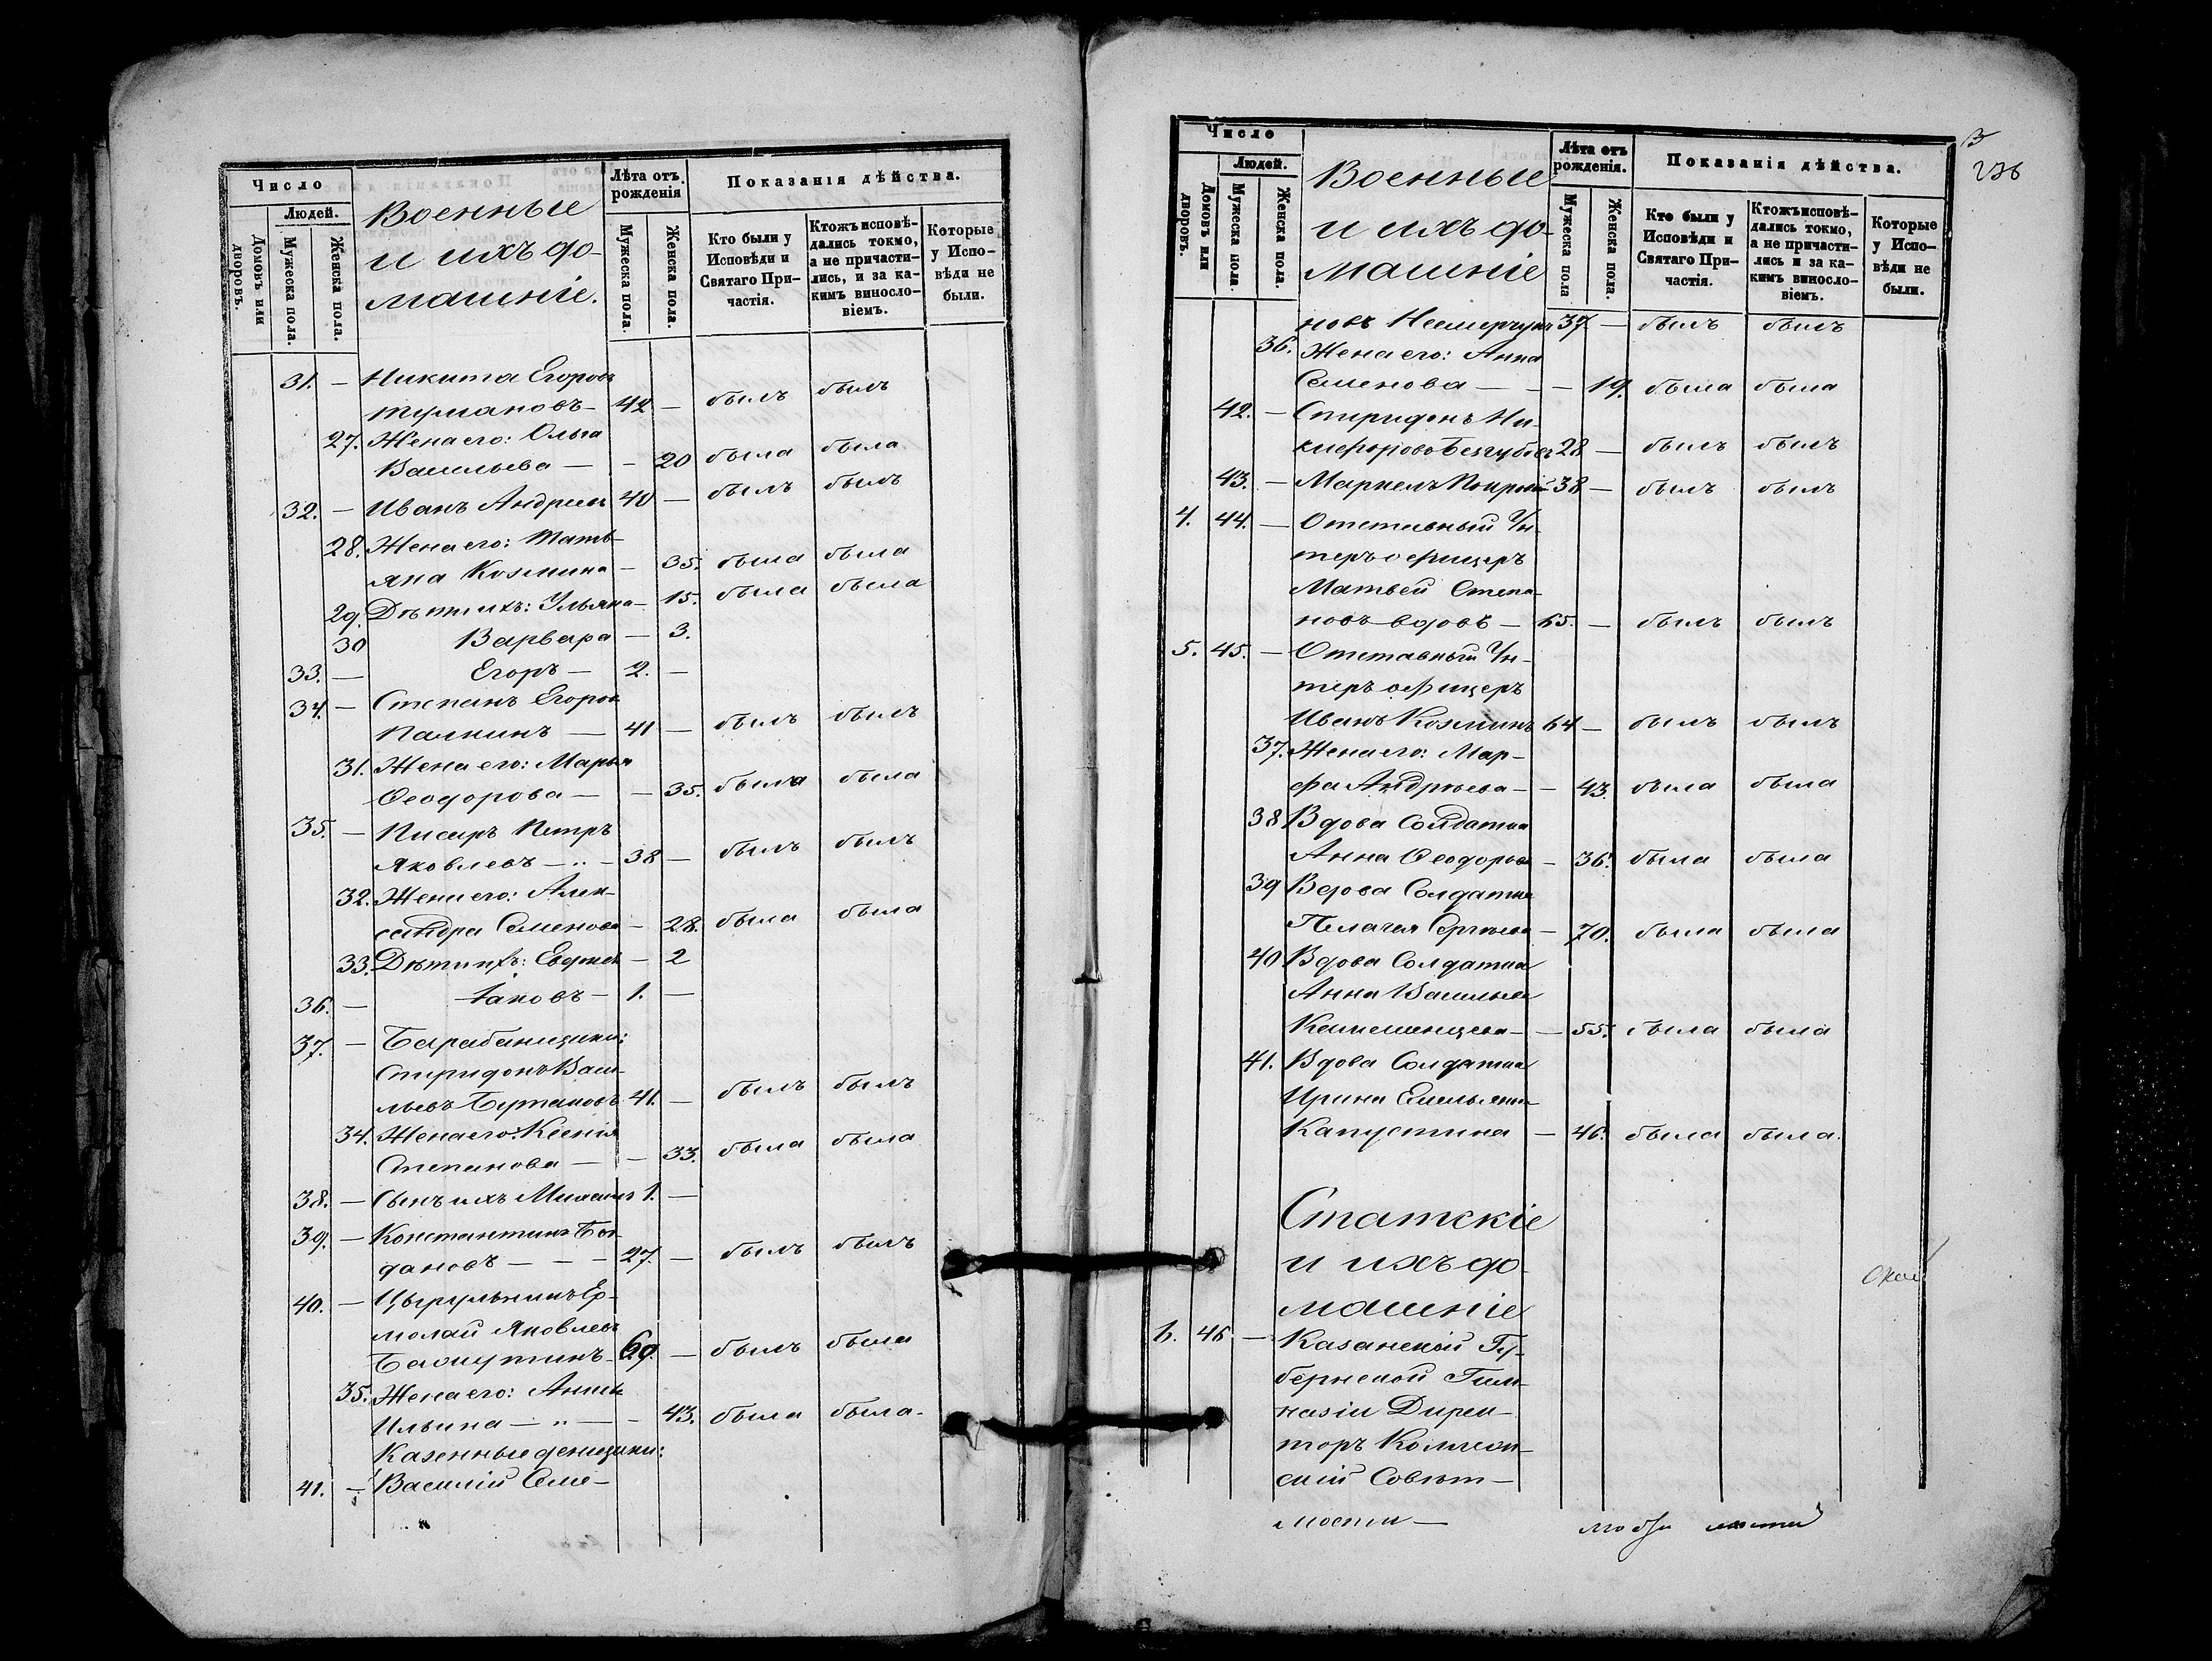 Число
Людей.
Домовъ или дворовъ.
Мужеска пола.
Женска пола.
Военные
и ихъ до-
машніе.
Лѣта отъ рожденія
Мужеска пола.
Женска пола.
Показанія дѣйства.
Кто были у Исповѣди и Святаго Причастія.
Ктожъ исповѣдались токмо, а не причастились, и за какимъ винословіемъ.
Которые у Исповѣди не были.
31. — Никита Егоровъ
Тумановъ — 42 — былъ былъ
27. Жена его: Ольга
Васильева — — 20 была была
32. — Иванъ Андреевъ 40 — былъ былъ
28. Жена его: Тать-
яна Козмина — 35. была была
29. Дѣти ихъ: Ульяна — 15. была была
30 Варвара — 3.
33. — Егоръ — 2. —
34. — Степанъ Егоровъ
Палкинъ — 41 — былъ былъ
31. Жена его: Марья
Ѳеодорова — — 35. была была
35. — Писарь Петръ
Яковлевъ — 38 — былъ былъ
32. Жена его: Алек-
сандра Семенова — 28. была была
33. Дѣти ихъ: — 2
36. — Іаковъ — 1. —
37. — Барабанщики:
Спиридонъ Васи-
льевъ 41. — былъ былъ
34. Жена его: Ксенія
Степанова — — 33. была была
38. — Сынъ ихъ Михаилъ 1. —
39. — Константинъ Бог-
дановъ — — — 27. — былъ былъ
40. — Цырульникъ Ер-
молай Яковлевъ
69. — былъ была
35. Жена его: Анна
Ильина — — 43. была была.
Казенные денщики:
41. — Василій Семе-
Число
Людей.
Домовъ или дворовъ.
Мужеска пола.
Женска пола.
Военные
и ихъ до-
машніе
Лѣта отъ рожденія.
Мужеска пола
Женска пола.
Показанія дѣйства.
Кто были у Исповѣди и Святаго Причастія.
Ктожъ исповѣдались токмо, а не причастились и за какимъ винословіемъ.
Которые у Исповѣди не были.
новъ 37 — былъ былъ
36. Жена его: Анна
Семенова — — — 19. была была
42. — Спиридонъ Ни-
кифоровъ Беззубовъ 28 — былъ былъ
43. — Маркелъ 38 — былъ былъ
4. 44. — Отставный Ун-
теръ офицеръ
Матвей Степа-
новъ вдовъ — 65. — былъ былъ
5. 45. — Отставный Ун-
теръ офицеръ
Иванъ Козминъ 64 — былъ былъ
37. Жена его: Мар-
фа Андреева — — 43. была была
38 Вдова Солдатка
Анна Ѳеодорова — 36. была была
39 Вдова Солдатка
Пелагея Сергеева — 70. была была
40 Вдова Солдатка
Анна Васильева
— — 55. была была
41. Вдова Солдатка
Ирина Емельянова
Капустина — 46. была была.
Статскіе
и ихъ до-
машніе
6. 46 — Казанской Гу-
бернской Гим-
назіи Дирек-
торъ Коллеж-
скій Совѣт-